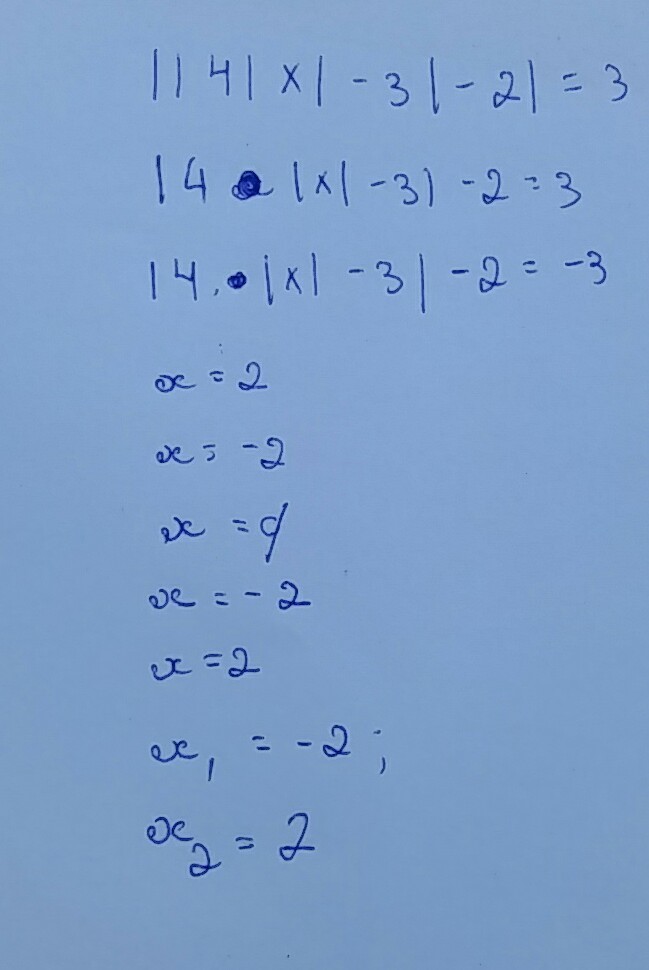 ||4|x|-3|-2|=3
|4 |x|-3|-2=3
|4.•|x|-3|-2=-3
x=2
x=-2
x=∅
x=-2
x=2
x₁=-2;
x₂=2